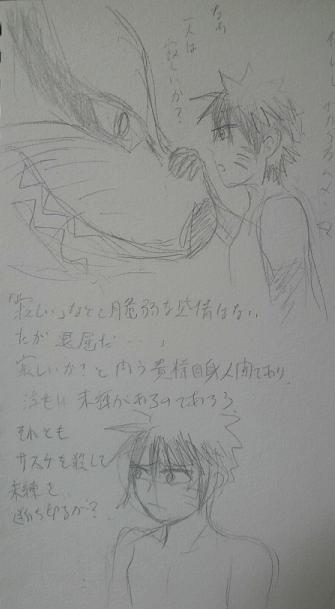 なあ
一人は
寂しいか?
「寂しい」などと脆弱な感情はない
だが退屈だ…」
寂しいか?と問う貴様自身人間であり、
未練があるのであろう
それとも
サスケを殺して
未練を
断ち切るか?